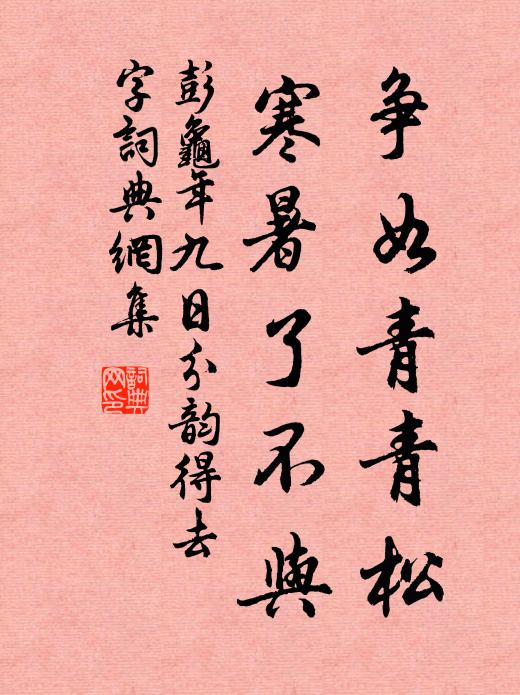 争如青青松
寒暑了不與
彭龜年九日分韵得去
字詞典網集
詞典网印